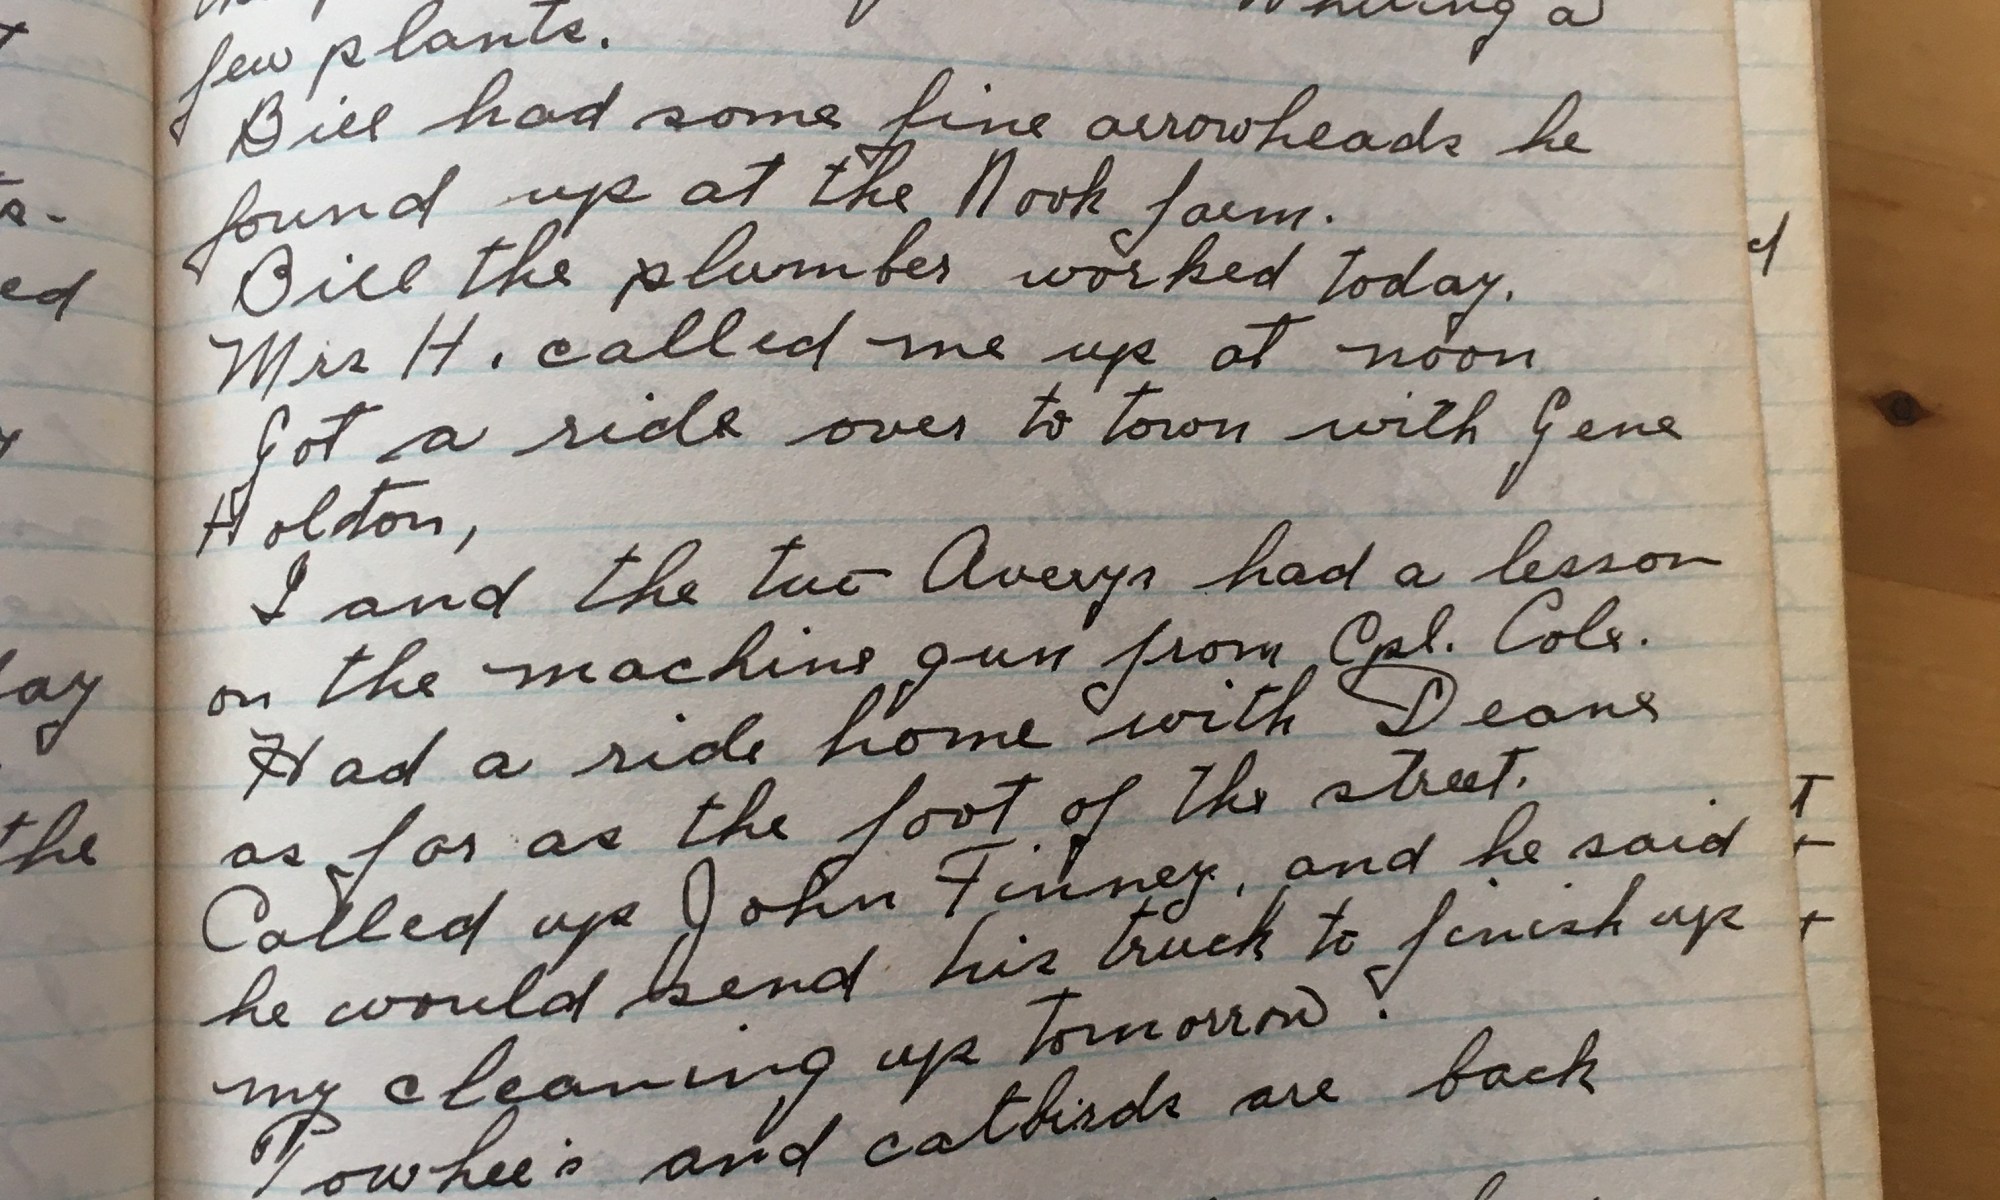 few plants.
Bill had some fine arrowheads he
found up at the Nook farm.
Bill the plumber worked today.
Mrs H. called me up at noon
Got a ride over to town with Gene
Holton,
I and the two Averys had a lesson
on the machine gun from Cpl. Cole.
Had a ride home with Deane
as far as the foot of the street.
Called up John Finney, and he said
he would send his truck to finish up
my cleaning up tomorrow.
Towhee's and catbirds are back